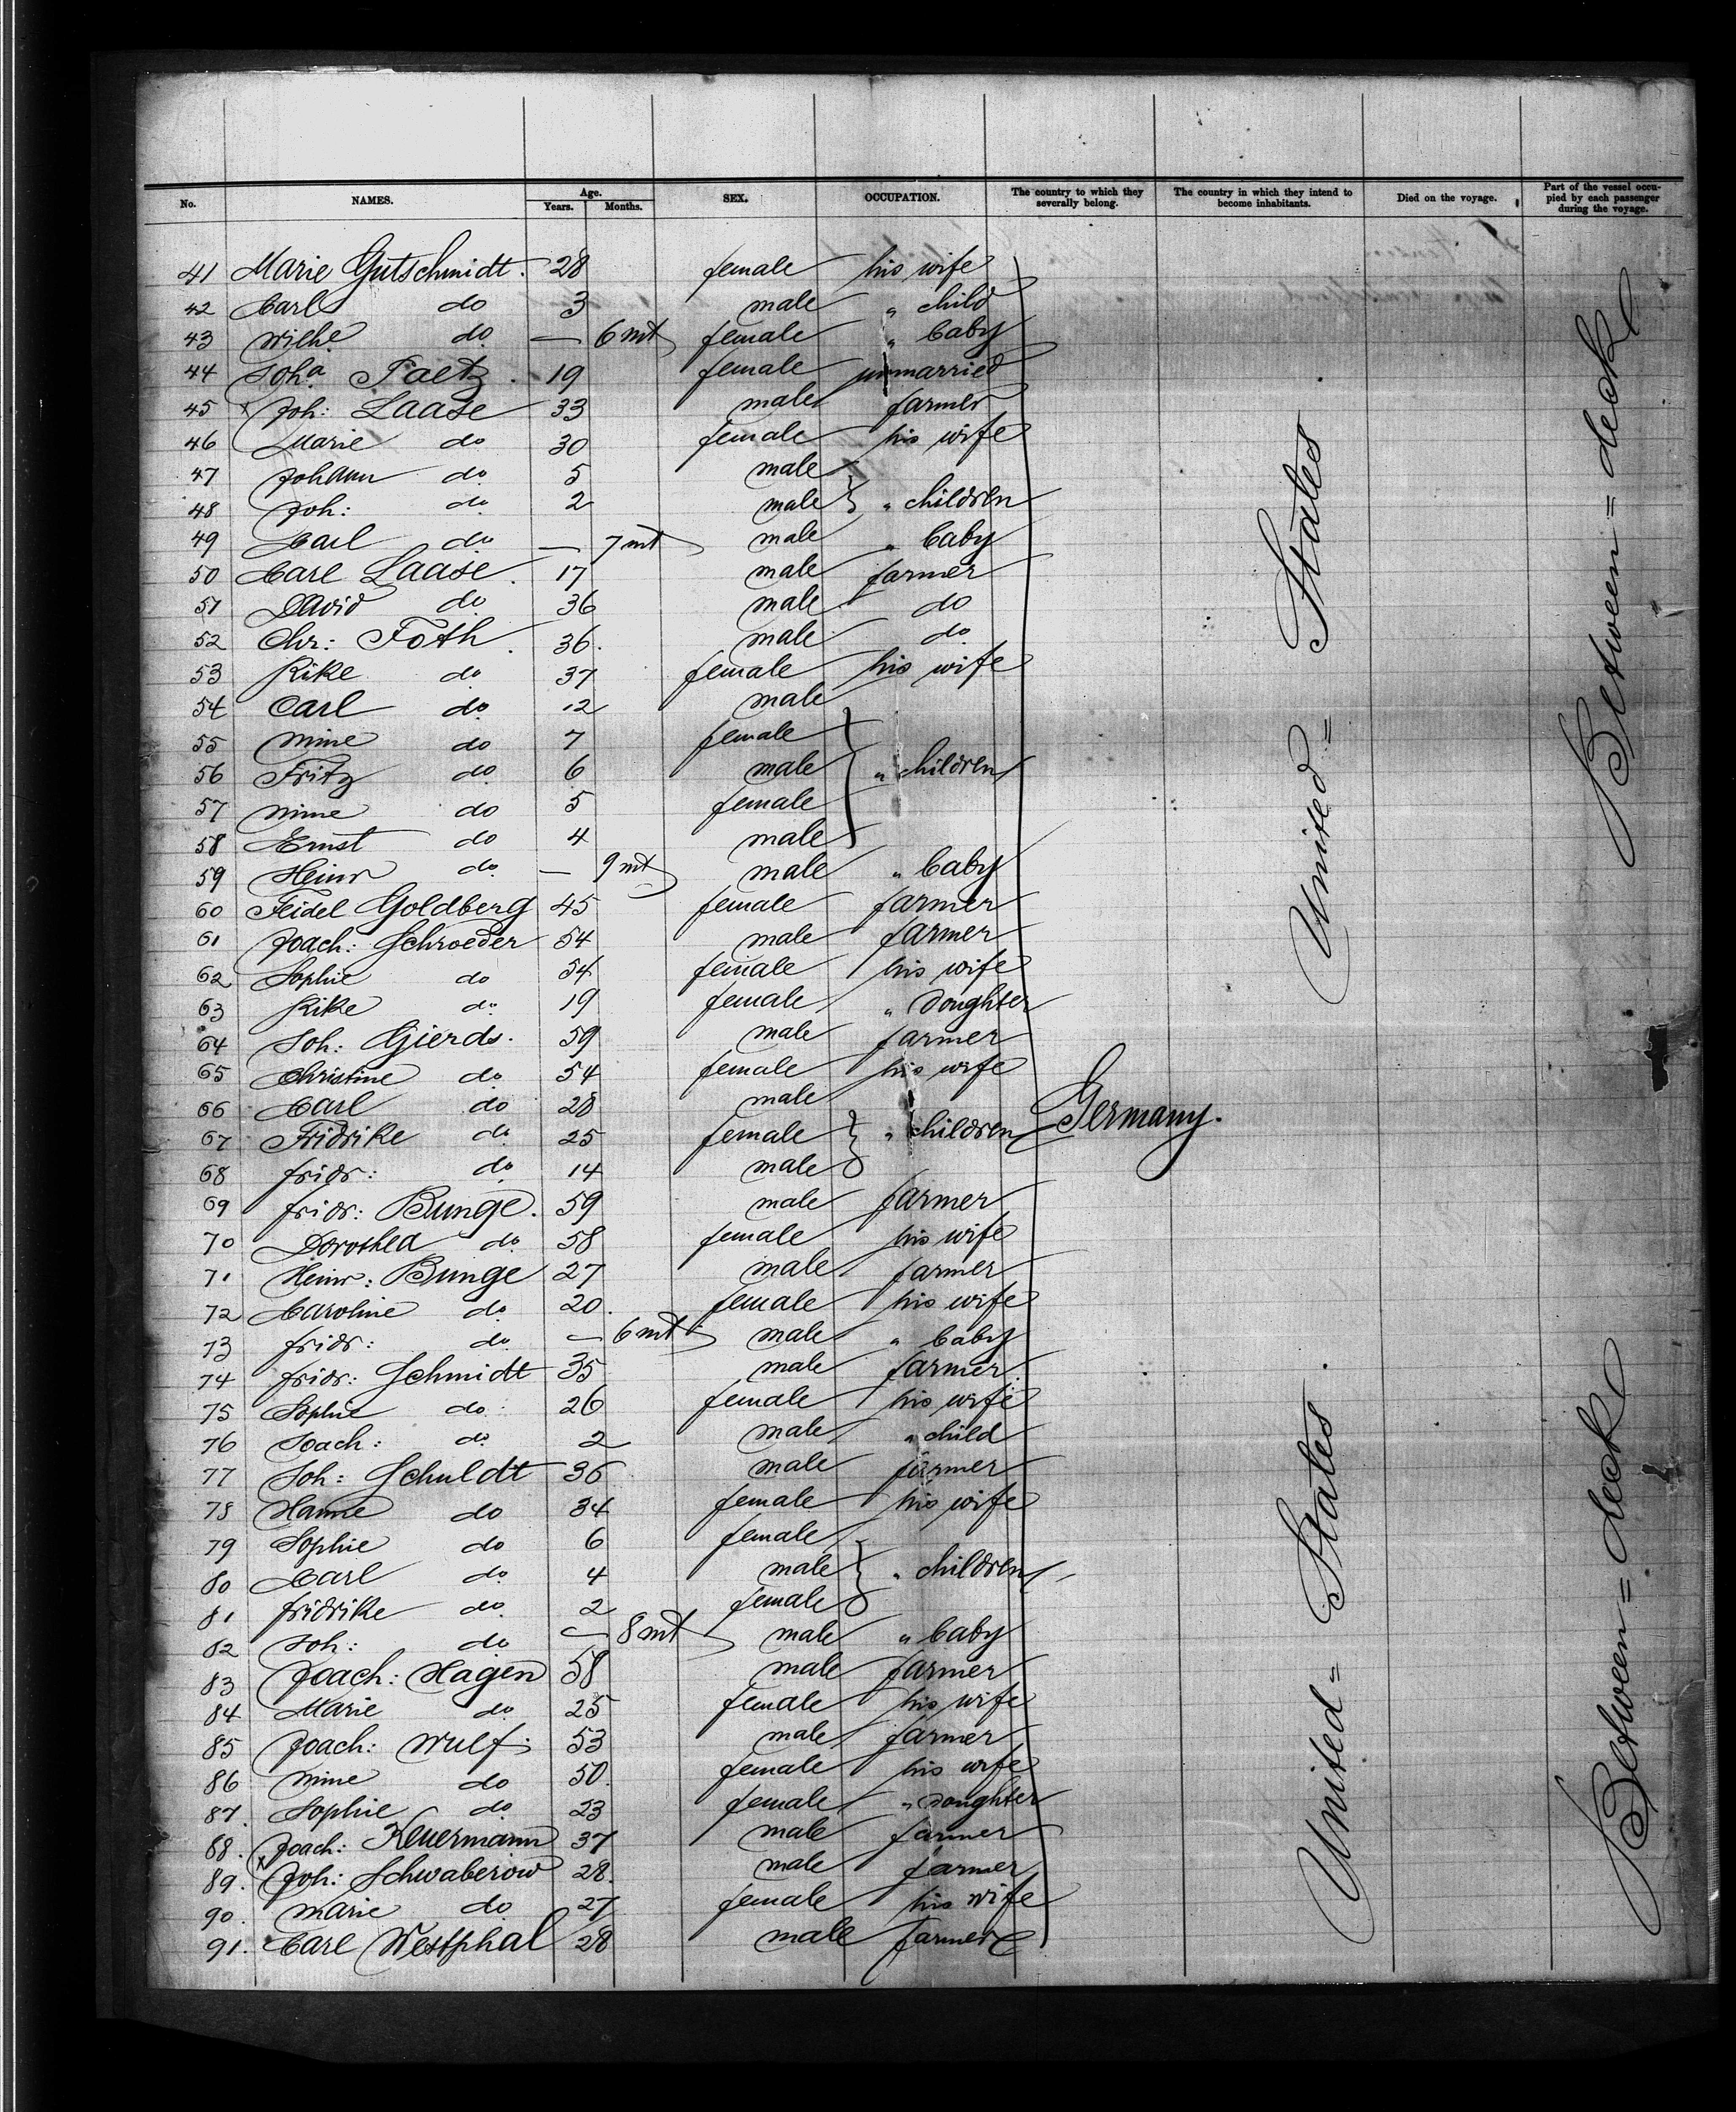 No. NAMES. Age. Years. Months. SEX. OCCUPATION. The country to which they severally belong. The country in which they intend to become inhabitants. Died on the voyage. Part of the vessel occupied by each passenger during the voyage.
41 Marie Gutschmidt. 28 female his wife
42 Carl do 3 male " child
43 Wilhe do — 6 mt female " baby
44 Joha Paetz. 19 female unmarried
45 x Joh: Laase 33 male farmer
46 Marie do 30 female his wife
47 Johann do 5 male
48 Joh: do 2 male } " children
49 Carl do — 7 mt male " baby
50 Carl Laase. 17 male farmer
51 David do 36 male do
52 Chr: Foth. 36. male do
53 Rike do 37 female his wife
54 Carl do 12 male
55 Mine do 7 female
56 Fritz do 6 male } " children
57 Mine do 5 female
58 Ernst do 4 male
59 Heinr do — 9 mt male " baby
60 Feidel Goldberg 45 female farmer
61 Joach: Schroeder 54 male farmer
62 Sophie do 54 female his wife
63 Rike do 19 female " Doughter
64 Joh: Gierds. 59 male farmer
65 Christine do 54 female his wife
66 Carl do 28 male
67 Fridrike do 25 female } " children Germany.
68 fridr: do 14 male
69 fridr: Bunge. 59 male farmer
70 Dorothea do 58 female his wife
71 Heinr: Bunge 27 male farmer
72 Caroline do 20. female his wife
73 fridr: do — 6 mt male " baby
74 fridr: Schmidt 35 male farmer.
75 Sophie do 26 female his wife
76 Joach: do 2 male " child
77 Joh: Schuldt 36 male farmer
78 Hanne do 34 female his wife
79 Sophie do 6 female
80 Carl do 4 male } " children
81 fridrike do 2 female
82 Joh: do — 8 mt male " baby
83 Joach: Hagen 58 male farmer
84 Marie do 25 female his wife
85 Joach: Wulf. 53 male farmer
86 Mine do 50. female his wife
87. Sophie do 23 female " Doughter
88. Joach: 37 male farmer
89. x Joh: Schwaberow 28. male farmer
90. Marie do 27 female his wife
91. Carl Westphal 28 male farmer
United = States
United = States
Between = deck
Between = deck